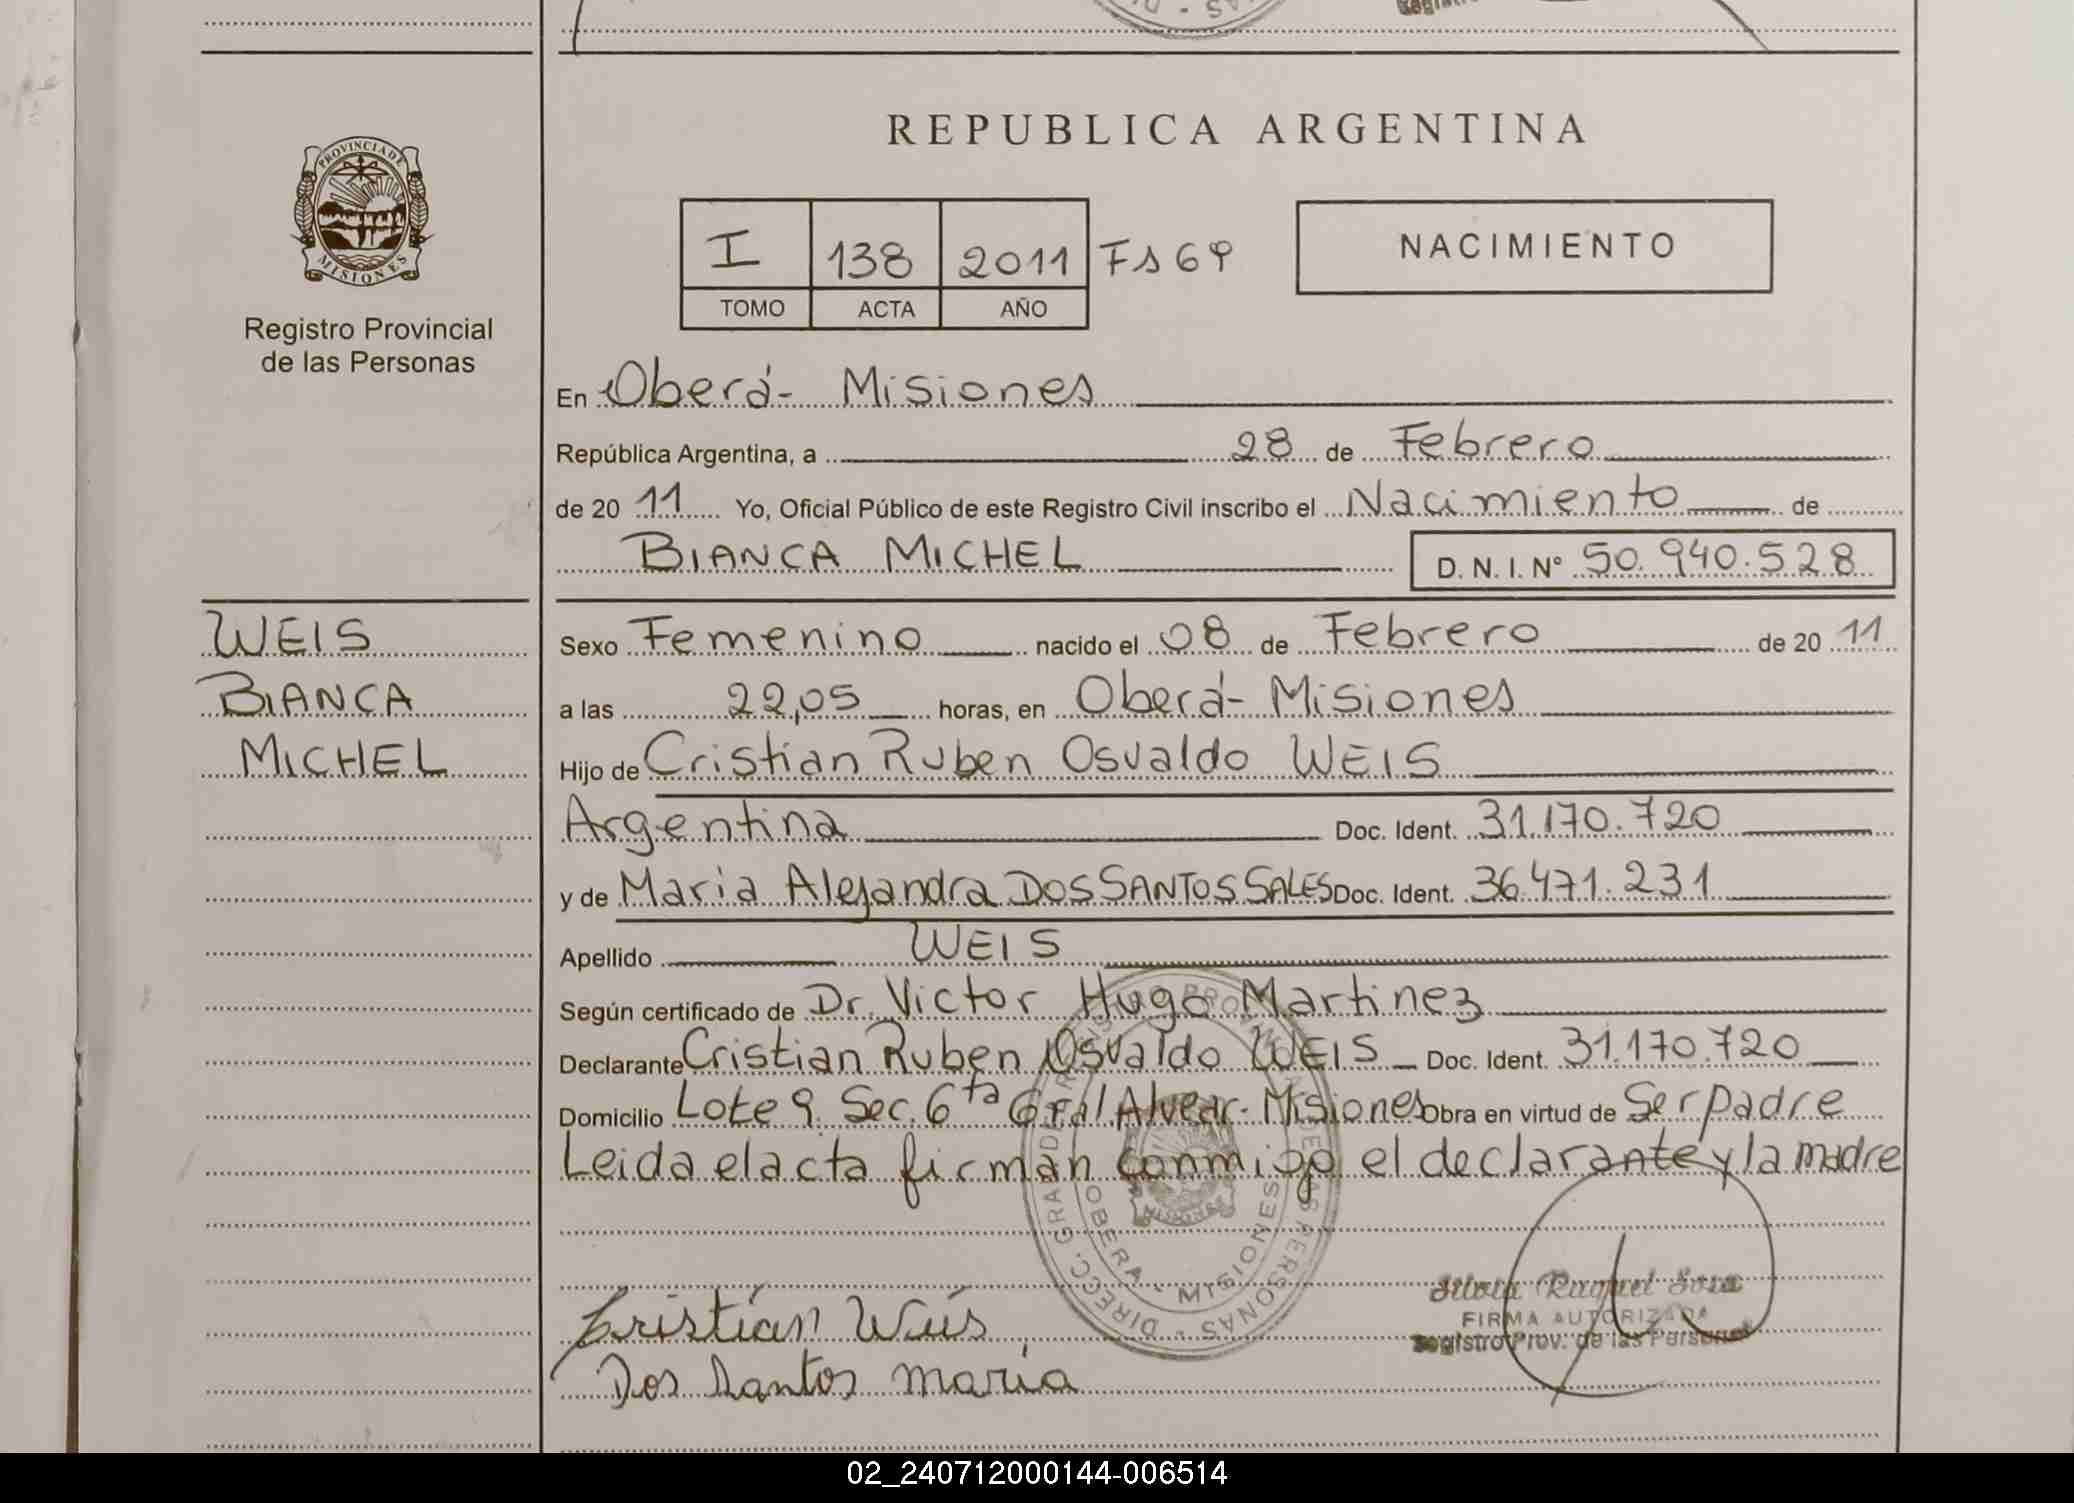 REPUBLICA ARGENTINA
PROVINCIA DE
MISIONES
Registro Provincial
de las Personas
I 138 2011 Fs 69
TOMO ACTA AÑO
NACIMIENTO
En Oberá- Misiones
República Argentina, a 28 de Febrero
de 20 11 Yo, Oficial Público de este Registro Civil inscribo el Nacimiento de
BIANCA MICHEL D. N. I. Nº 50.940.528
WEIS
BIANCA
MICHEL
Sexo Femenino nacido el 08 de Febrero de 20 11
a las 22,05 horas, en Oberá- Misiones
Hijo de Cristian Ruben Osvaldo WEIS
Argentina Doc. Ident. 31.170.720
y de Maria Alejandra DOS SANTOS SALES Doc. Ident. 36.471.231
Apellido WEIS
Según certificado de Dr. Victor Hugo Martinez
Declarante Cristian Ruben Osvaldo WEIS Doc. Ident. 31.170.720
Domicilio Lote 9 Sec. 6ta Gral Alvear- Misiones Obra en virtud de Ser padre
Leida el acta firman conmigo el declarante y la madre
OBERA - MISIONES
Silvia Raquel Sosa
FIRMA AUTORIZADA
Registro Prov. de las Personas
Cristian Weis
Dos Santos maria
02_240712000144-006514